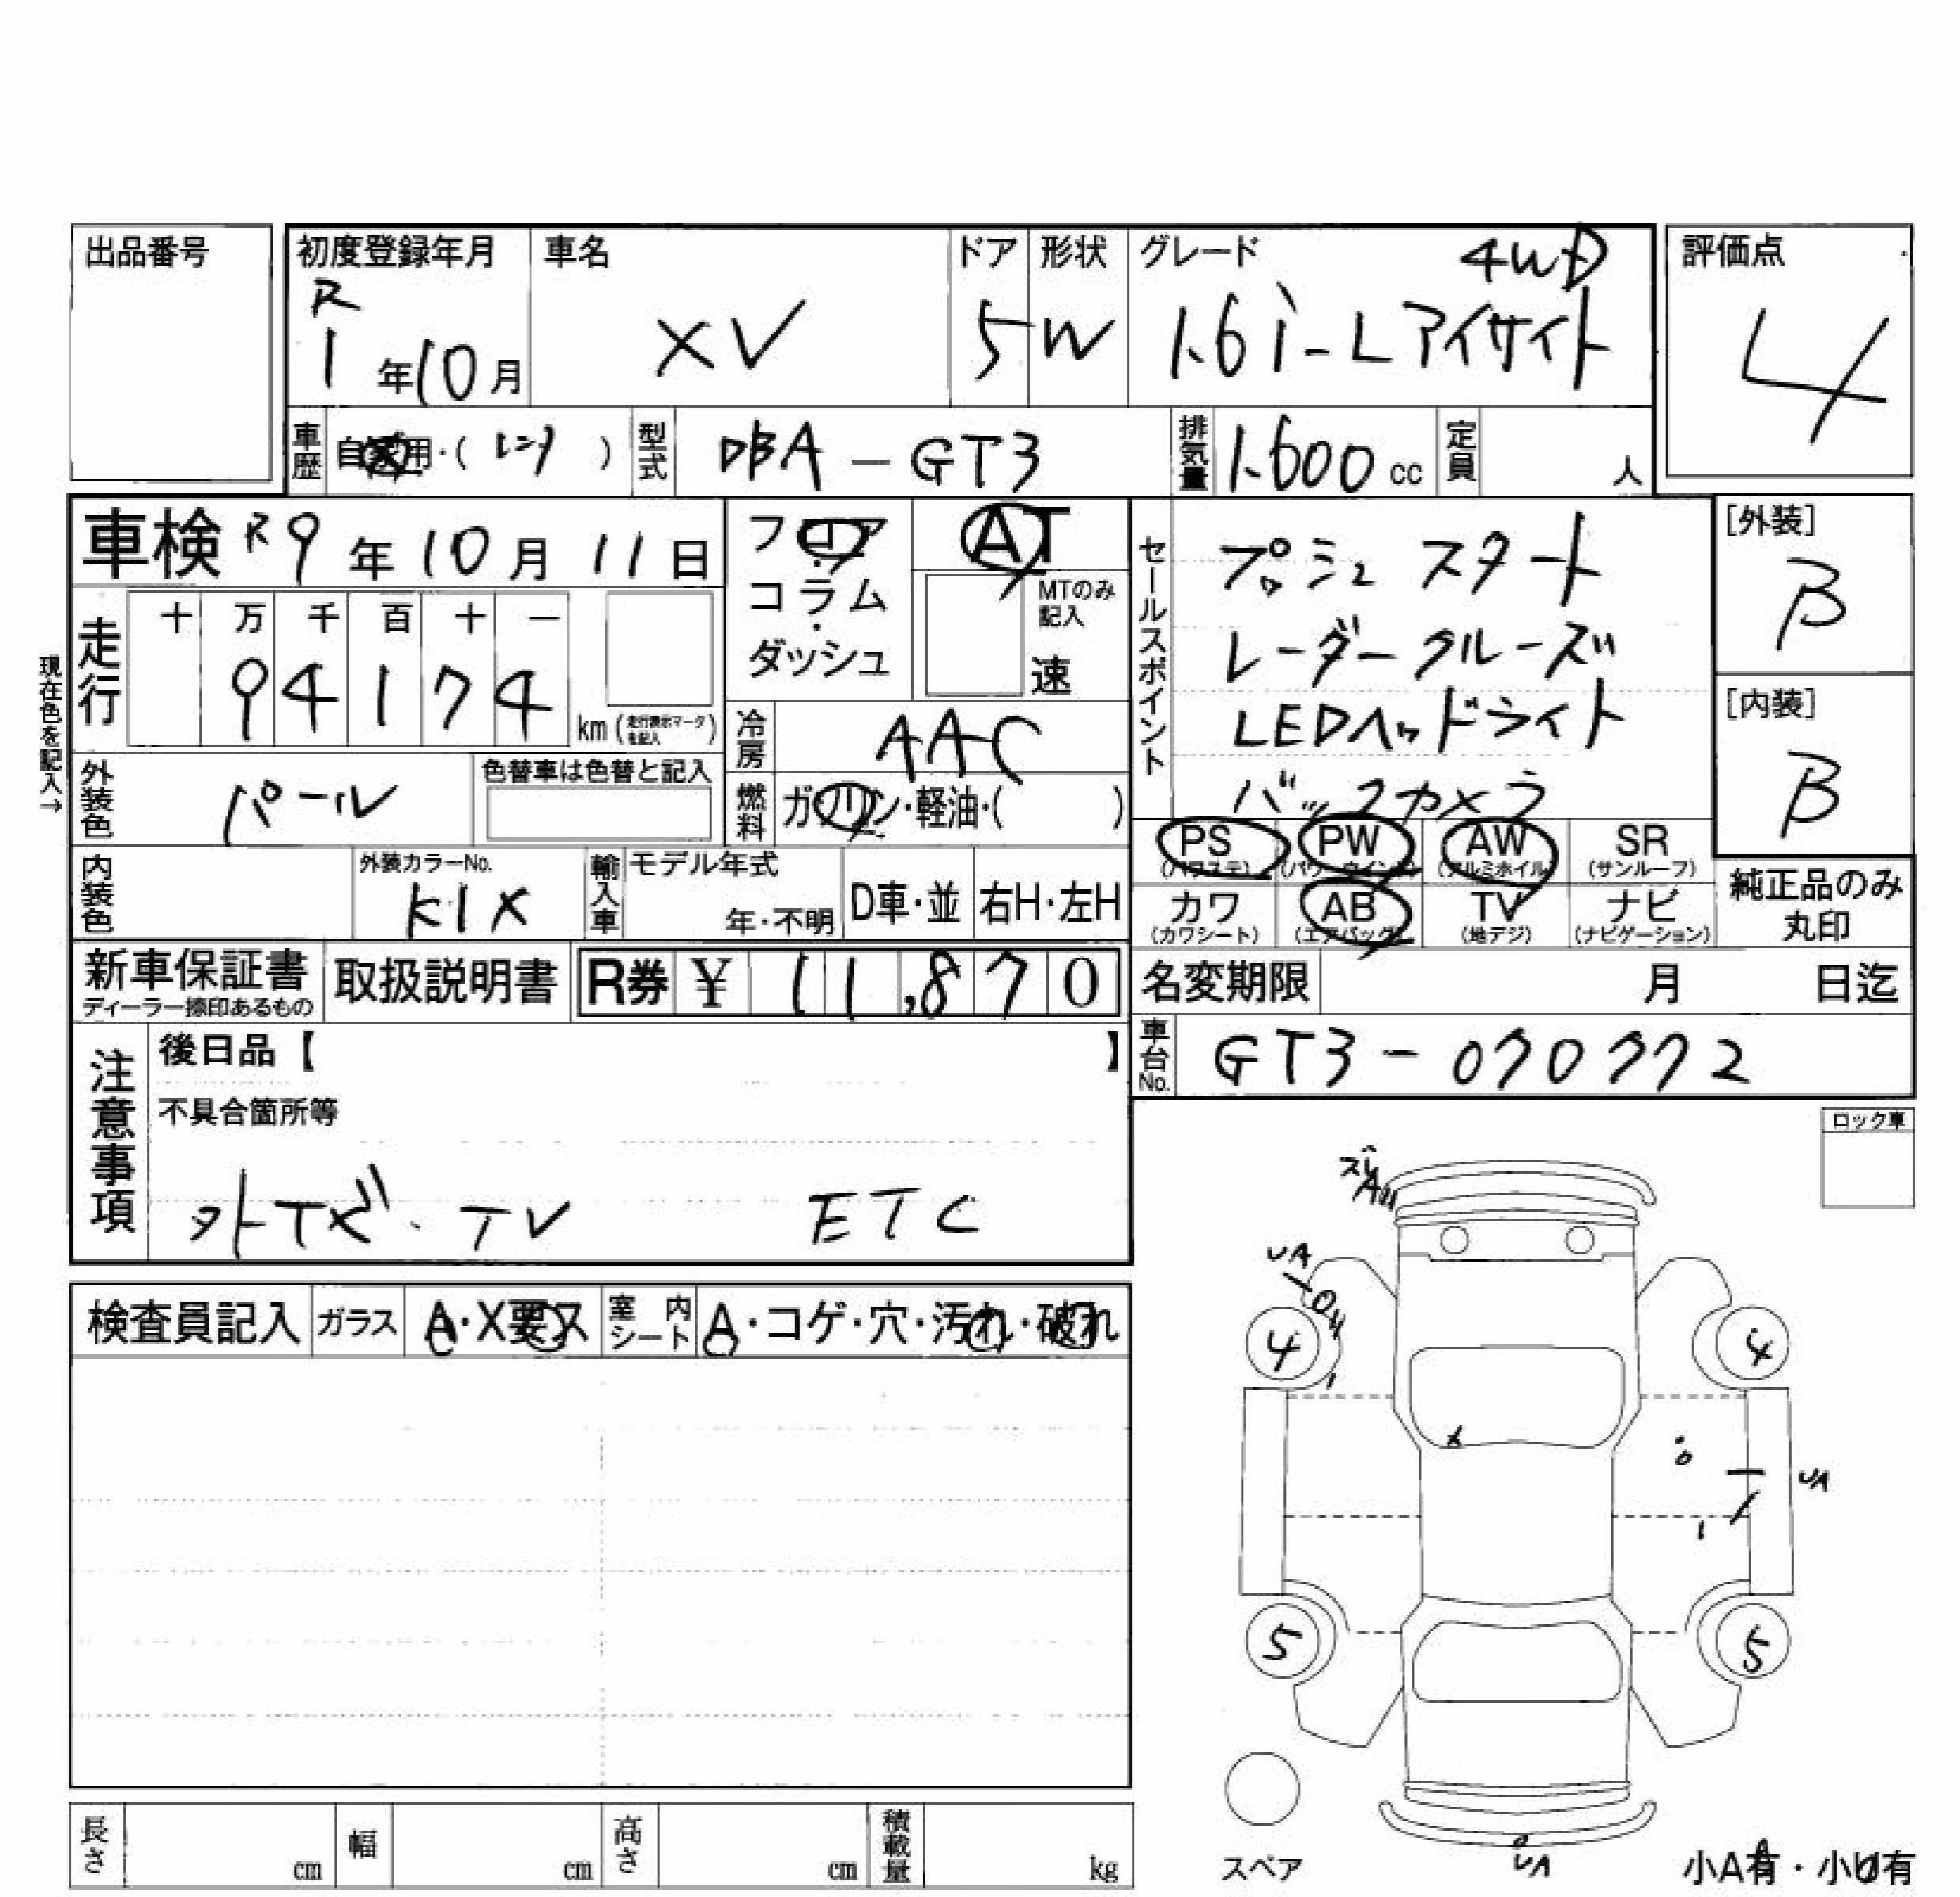 出品番号
初度登録年月
R
1 年 10 月
車名
XV
ドア
5
形状
W
グレード 4WD
1.6i-L アイサイト
評価点
4
車歴
自家用・( レンタ )
型式
DBA-GT3
排気量
1.600 cc
定員
人
車検 R9 年 10 月 11 日
現在色を記入→
走行
十 万 千 百 十 一
9 4 1 7 4
km (走行表示マークを記入)
フロア
・
コラム
・
ダッシュ
AT
MTのみ
記入
速
冷房
AAC
燃料
ガソリン・軽油・( )
外装色
パール
色替車は色替と記入
内装色
外装カラーNo.
K1X
輸入車
モデル年式
年・不明
D車・並
右H・左H
セールスポイント
プッシュスタート
レーダークルーズ
LEDヘッドライト
バックカメラ
PS
(パワステ)
PW
(パワーウインド)
AW
(アルミホイル)
SR
(サンルーフ)
カワ
(カワシート)
AB
(エアバッグ)
TV
(地デジ)
ナビ
(ナビゲーション)
[外装]
B
[内装]
B
純正品のみ
丸印
新車保証書
ディーラー捺印あるもの
取扱説明書
R券 ¥ 11,870
名変期限 月 日迄
車台No.
GT3-070772
注意事項
後日品【 】
不具合箇所等
TV ETC
検査員記入
ガラス
A・X要ス
室内シート
A・コゲ・穴・汚れ・破れ
長さ
cm
幅
cm
高さ
cm
積載量
kg
ロック車
UA
4
4
X
UA
5
5
スペア
UA
小A有・小U有